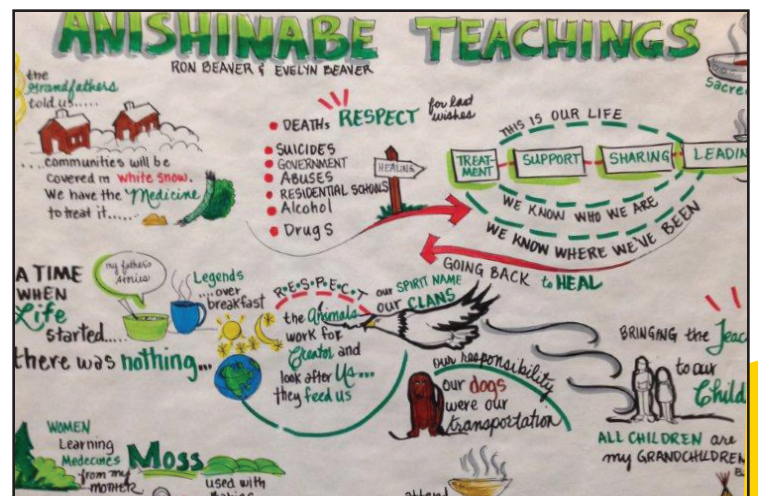 ANISHINABE TEACHINGS
RON BEAVER & EVELYN BEAVER
the
Grandfathers
told us.....
...communities will be
covered in white snow.
We have the Medicine
to treat it......
DEATHs RESPECT for last
wishes
SUICIDES
GOVERNMENT
ABUSES
RESIDENTIAL SCHOOLS
Alcohol
Drugs
HEALING
THIS IS OUR LIFE
TREAT-
MENT
SUPPORT
SHARING
LEADIN
WE KNOW WHO WE ARE
WE KNOW WHERE WE'VE BEEN
GOING BACK to HEAL
Sacre
A TIME
WHEN
Life
started....
there was nothing...
my father's
stories
Legends
....over
breakfast
R•E•S•P•E•C•T
the Animals
work for
Creator and
look after Us...
they feed us
our SPIRIT NAME
our CLANS
our responsibility
our dogs
were our
transportation
BRINGING the Teac
to our
Child
ALL CHILDREN are
my GRANDCHILDREN
WOMEN
Learning
Medecines
from my
MOTHER
Moss
used with